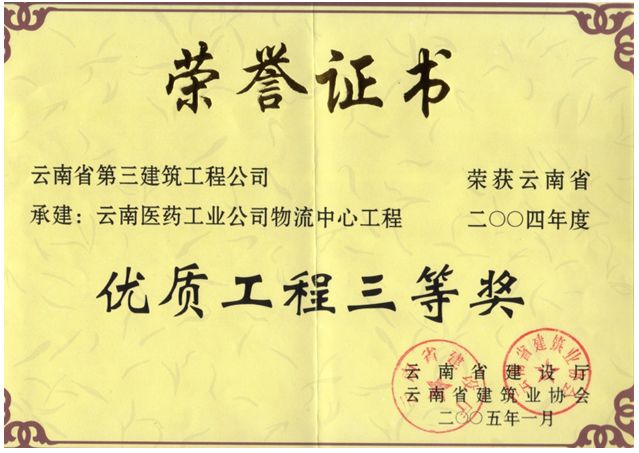 荣誉证书
云南省第三建筑工程公司 荣获云南省
承建：云南医药工业公司物流中心工程 二〇〇四年度
优质工程三等奖
云南省建设厅
云南省建筑业协会
二〇〇五年一月
云南省建设厅
云南省建筑业协会